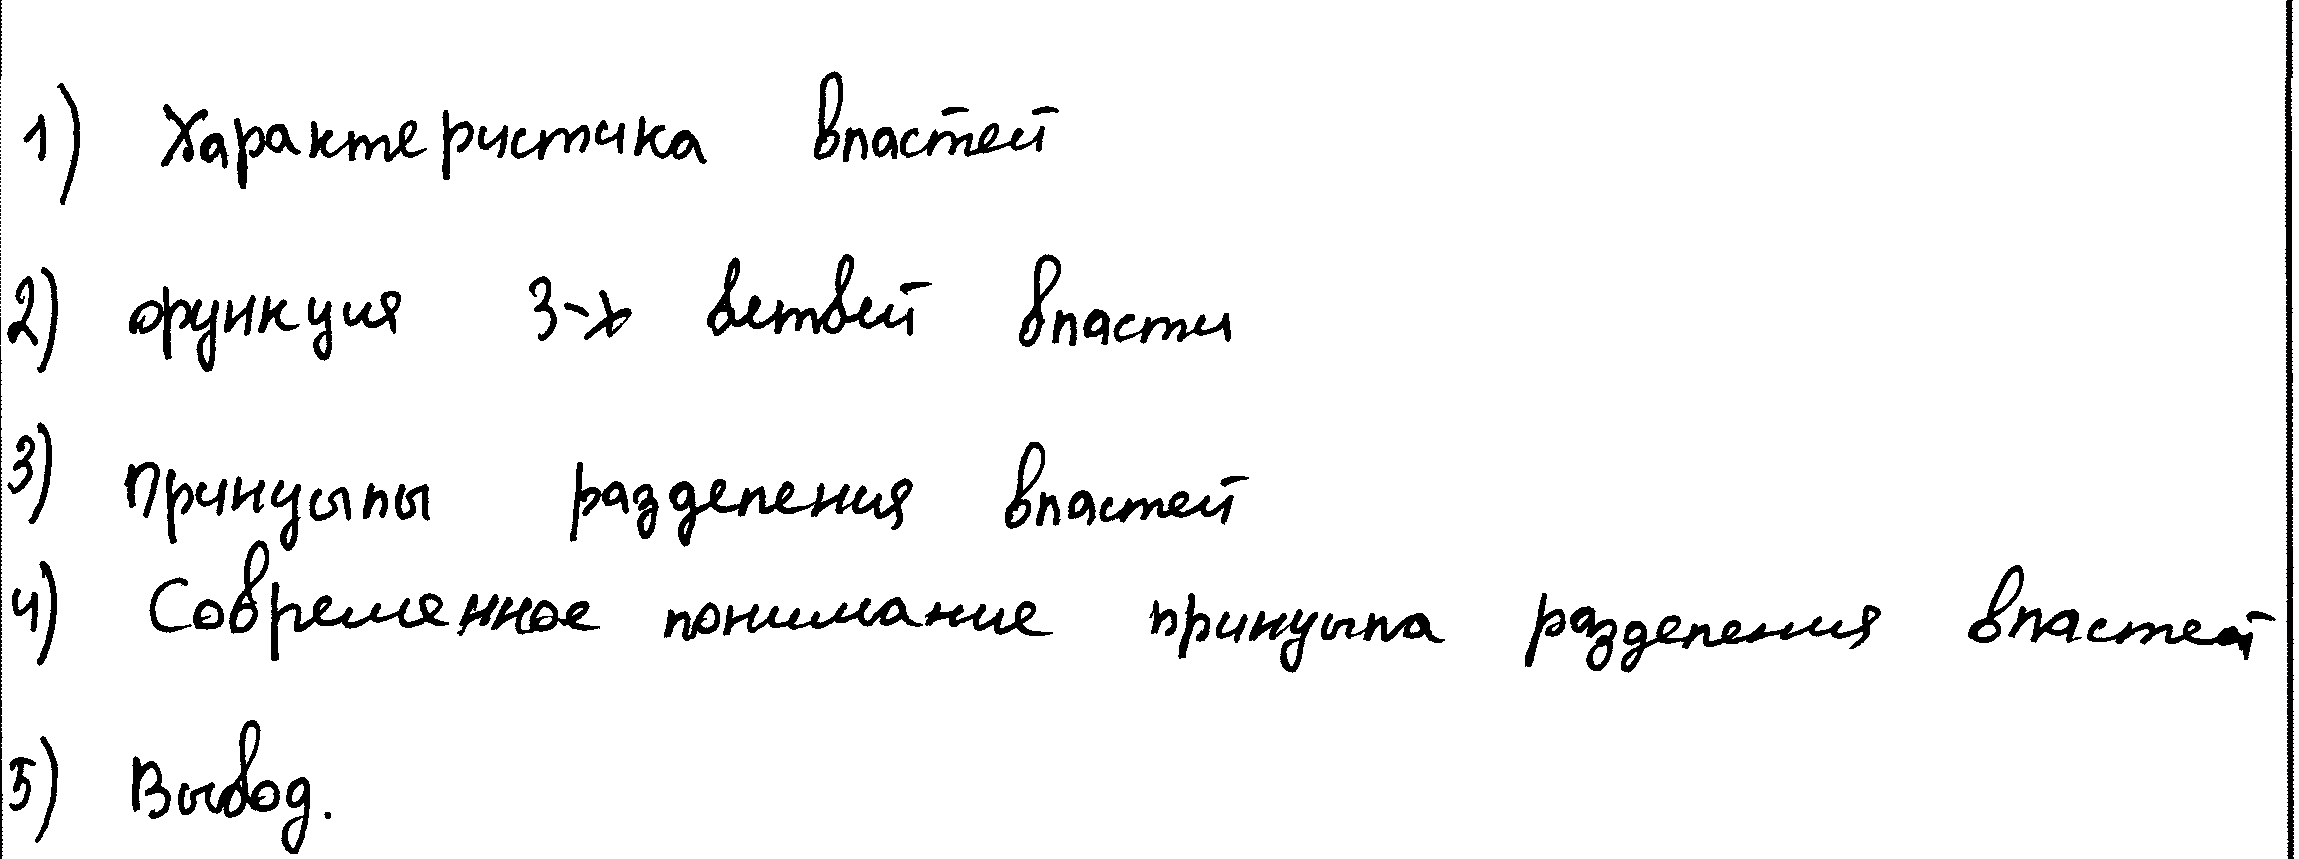 1) Характеристика властей
2) функция 3-х ветвей власти
3) Принцыпы разделения властей
4) Современное понимание принцыпа разделения властей
5) Вывод.